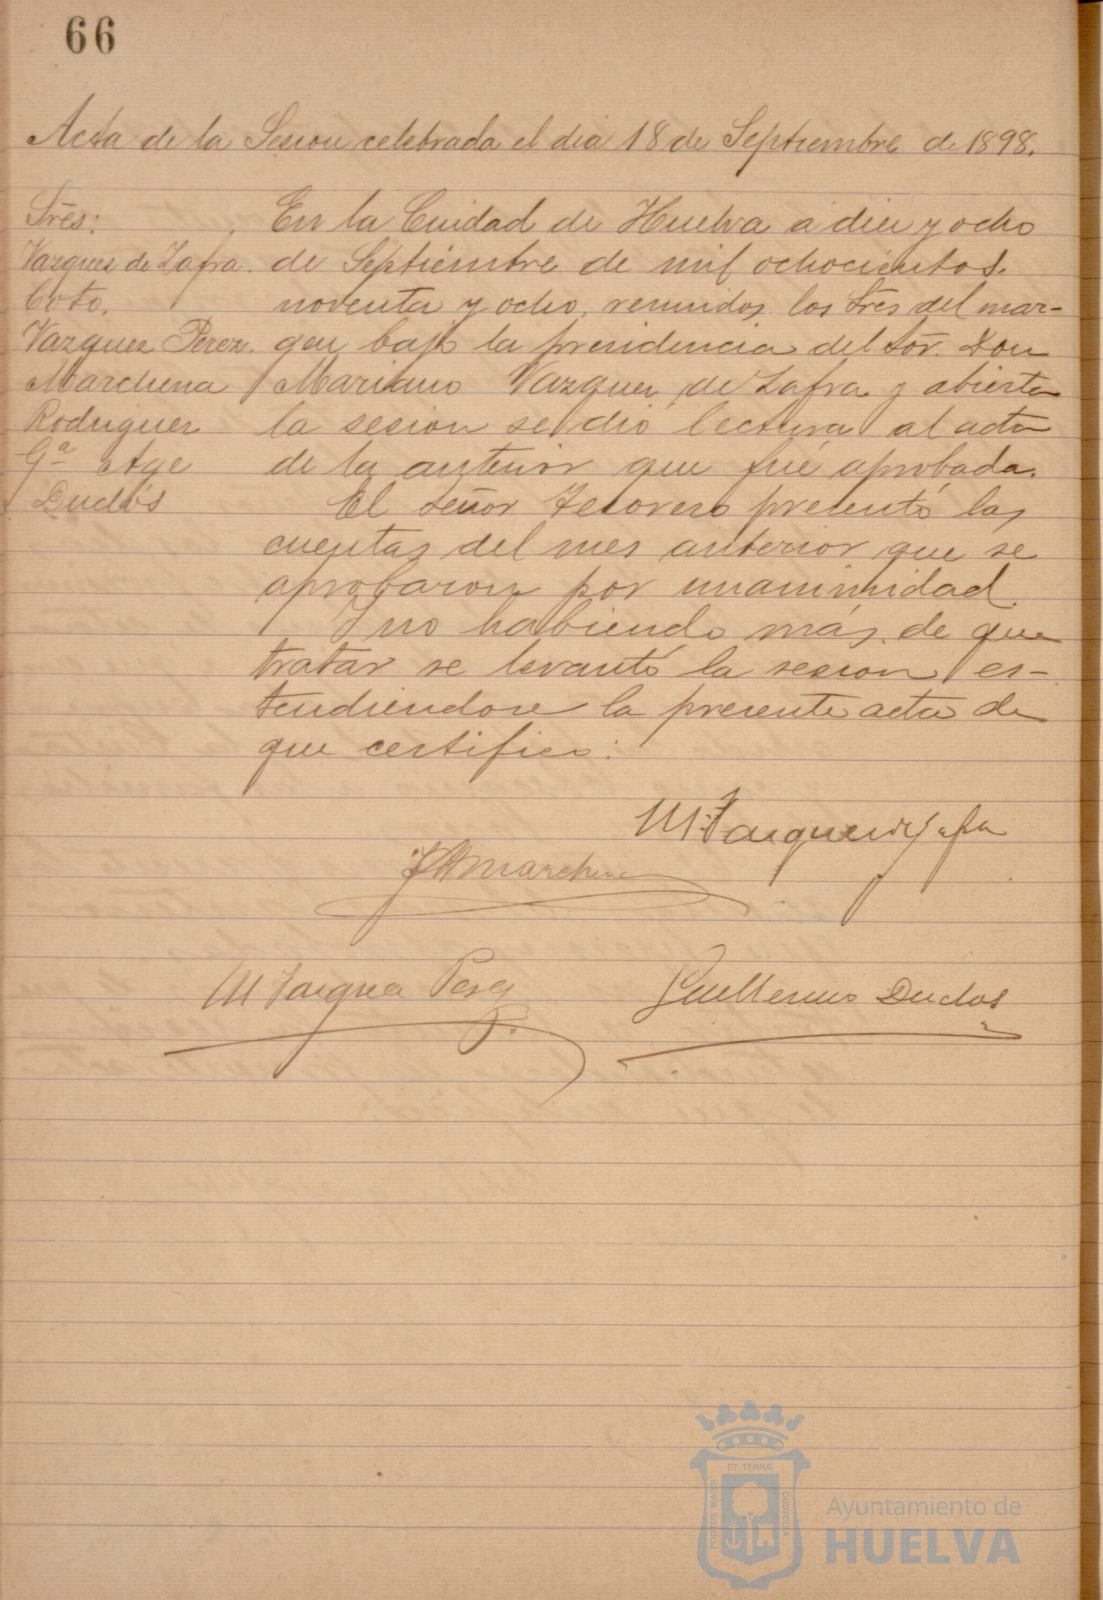 66
Acta de la Sesion celebrada el dia 18 de Septiembre de 1898.
Sres:
Vazquez de Zafra.
Coto.
Vazquez Perez.
Marchena
Rodriguez
Gª Age
Duclós
En la Cuidad de Huelva a diez y ocho
de Septiembre de mil ochocientos
noventa y ocho, reunidos los Sres del mar-
gen bajo la presidencia del Sor. Don
Mariano Vazquez de Zafra y abierta
la sesion se dió lectura al acta
de la anterior que fué aprobada.
El señor Tesorero presentó las
cuentas del mes anterior que se
aprobaron por unanimidad.
Y no habiendo más de que
tratar se levantó la sesion es-
tendiendose la presente acta de
que certifico:
M. Vazquez de Zafra
Marchena
M Vazquez Perez
Guillermo Duclos
ET TERRÆ
CUSTODIA
PORTUS MARIS
Ayuntamiento de
HUELVA